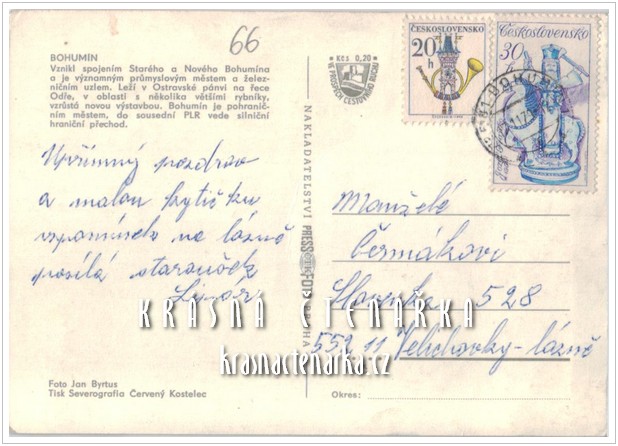 66
BOHUMÍN
Vznikl spojením Starého a Nového Bohumína
a je významným průmyslovým městem a želez-
ničním uzlem. Leží v Ostravské pánvi na řece
Odře, v oblasti s několika většími rybníky,
vzrůstá novou výstavbou. Bohumín je pohranič-
ním městem, do sousední PLR vede silniční
hraniční přechod.
Kčs 0,20
VE PROSPĚCH CESTOVNÍHO RUCHU
ČESKOSLOVENSKO
20
h
Československo
30
BOHUMÍN
Upřímný pozdrav
a malou kytičku
vzpomínek na lázně
posílá
NAKLADATELSTVÍ PRESSFOTO PRAHA
Manželé
Čermákovi
Slovenka 528
552 11 Velichovky-lázně
KRÁSNÁ ČTENÁŘKA
krasnactenarka.cz
Foto Jan Byrtus
Tisk Severografia Červený Kostelec
Okres: